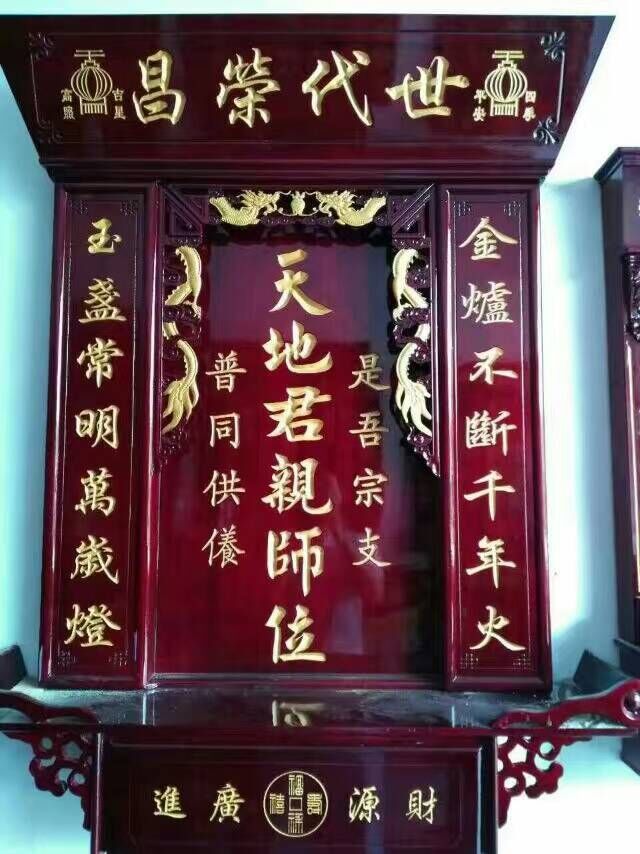 世代榮昌
四季
平安
吉星
高照
金爐不斷千年火
是吾宗支
天地君親師位
普同供
玉盞常明萬歲燈
財源廣進
福壽祥禧